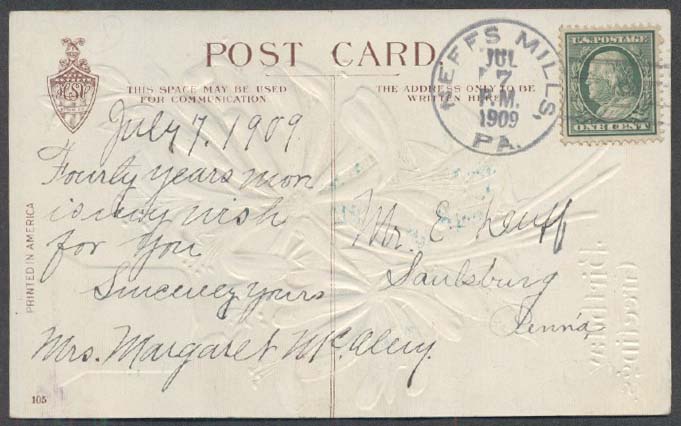 POST CARD.
THIS SPACE MAY BE USED
FOR COMMUNICATION
THE ADDRESS ONLY TO BE
WRITTEN HERE
NEFFS MILLS,
JUL
7
P.M.
1909
PA.
U.S. POSTAGE
ONE CENT
July 7, 1909
Fourty years mor
is my wish
for you
Sincerey yours
Mrs. Margaret McAlevy.
Mr. E. Neuff
Saulsburg
Penna,
PRINTED IN AMERICA
105
Birthday
Greetings